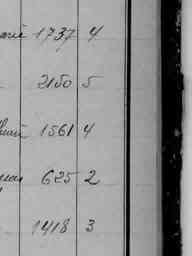 1737 4
2150 5
1561 4
625 2
1418 3